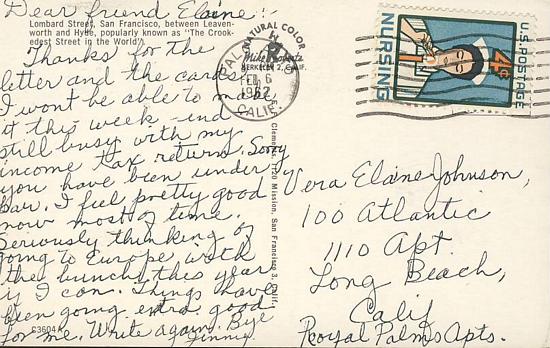 Dear friend Elaine:-
Lombard Street, San Francisco, between Leaven-
worth and Hyde, popularly known as "The Crook-
edest Street in the World".
Thanks for the
letter and the cards.
I won't be able to make
it this week-end
still busy with my
income tax return. Sorry
you have been under
par. I feel pretty good
now most of time.
Seriously thinking of
going to Europe with
the bunch this year
if I can. Things have
been going extra good
for me. Write again. Bye
Jinnie
C3604
NATURAL COLOR
Mike Roberts
BERKELEY 2, CALIF.
FEB 6
1962
CALIF.
Clement, 1120 Mission, San Francisco 3, Calif.
U.S. POSTAGE
4¢
NURSING
Vera Elaine Johnson,
100 Atlantic
1110 Apt.
Long Beach,
Calif
Royal Palms Apts.